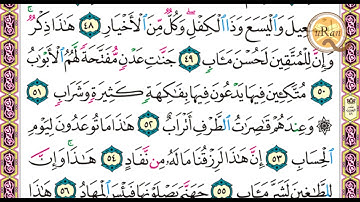 عِيلَ وَٱلْيَسَعَ وَذَا ٱلْكِفْلِ ۖ وَكُلٌّ مِّنَ ٱلْأَخْيَارِ ٤٨ هَٰذَا ذِكْرٌ ۚ
وَإِنَّ لِلْمُتَّقِينَ لَحُسْنَ مَـَٔابٍ ٤٩ جَنَّٰتِ عَدْنٍ مُّفَتَّحَةً لَّهُمُ ٱلْأَبْوَٰبُ
٥٠ مُتَّكِـِٔينَ فِيهَا يَدْعُونَ فِيهَا بِفَٰكِهَةٍ كَثِيرَةٍ وَشَرَابٍ ٥١
وَعِندَهُمْ قَٰصِرَٰتُ ٱلطَّرْفِ أَتْرَابٌ ٥٢ هَٰذَا مَا تُوعَدُونَ لِيَوْمِ
ٱلْحِسَابِ ٥٣ إِنَّ هَٰذَا لَرِزْقُنَا مَا لَهُۥ مِن نَّفَادٍ ٥٤ هَٰذَا ۚ وَإِنَّ
لِلطَّٰغِينَ لَشَرَّ مَـَٔابٍ ٥٥ جَهَنَّمَ يَصْلَوْنَهَا فَبِئْسَ ٱلْمِهَادُ ٥٦ هَٰذَا